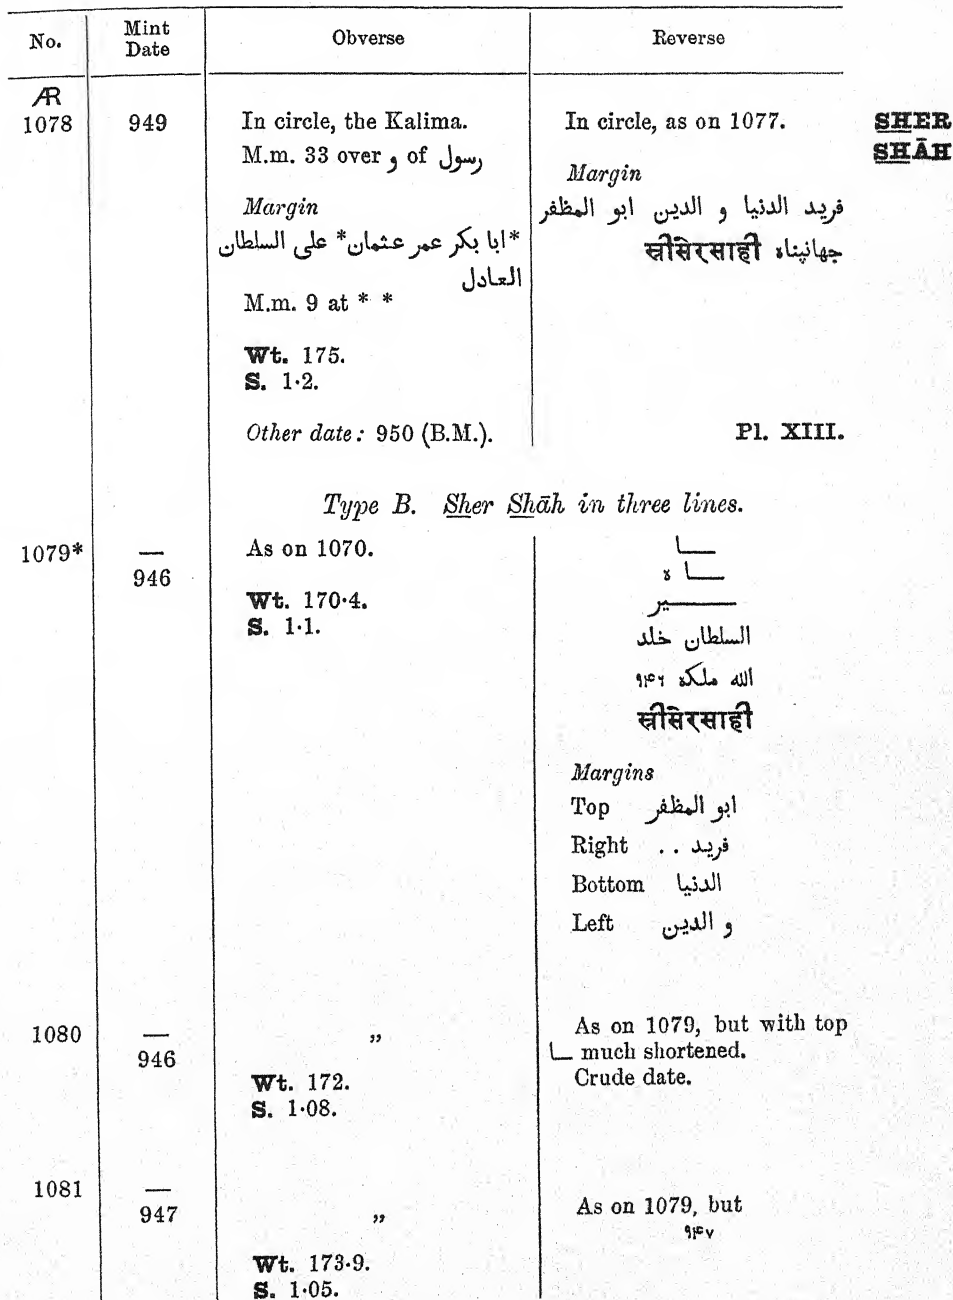 No.
Mint
Date
Obverse
Reverse
Æ
1078
949
In circle, the Kalima.
M.m. 33 over و of رسول
Margin
*ابا بكر عمر عثمان* على السلطان
العادل
M.m. 9 at * *
Wt. 175.
S. 1·2.
Other date: 950 (B.M.).
In circle, as on 1077.
Margin
فريد الدنيا و الدين ابو المظفر
جهانپناه स्रीसेरसाही
Pl. XIII.
SHER
SHĀH
Type B. Sher Shāh in three lines.
1079*
—
946
As on 1070.
Wt. 170·4.
S. 1·1.
ـا
ـا ه
ـير
السلطان خلد
الله ملكه ۹۴۶
स्रीसेरसाही
Margins
Top ابو المظفر
Right فريد . .
Bottom الدنيا
Left و الدين
1080
—
946
„
Wt. 172.
S. 1·08.
As on 1079, but with top
ـا much shortened.
Crude date.
1081
—
947
„
Wt. 173·9.
S. 1·05.
As on 1079, but
۹۴۷